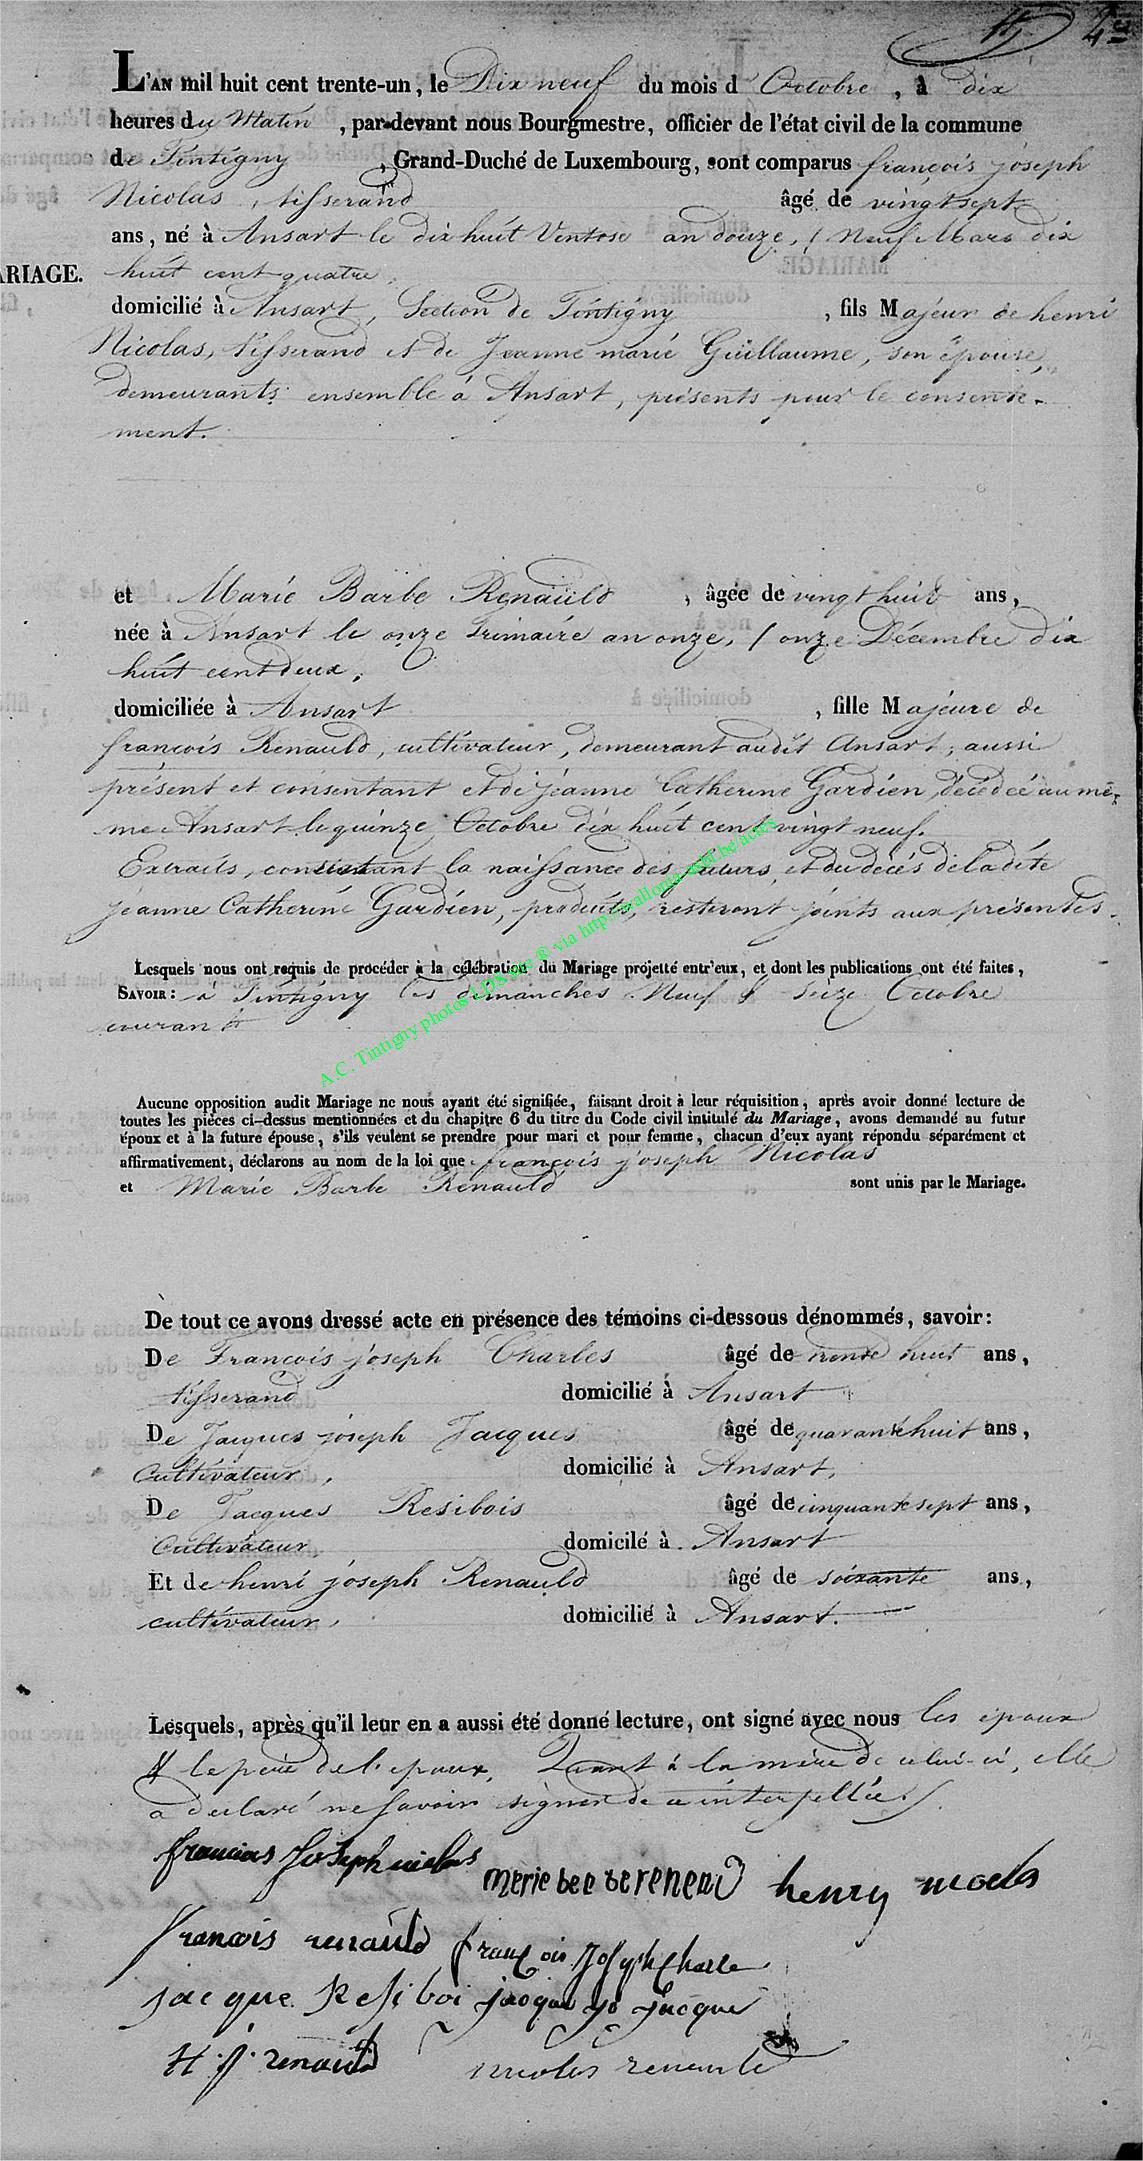 L'AN mil huit cent trente-un, le Dix neuf du mois d Octobre, à dix
heures du Matin, par-devant nous Bourgmestre, officier de l'état civil de la commune
de Tintigny, Grand-Duché de Luxembourg, sont comparus françois joseph
Nicolas, tisserand âgé de vingt sept
ans, né à Ansart le dix huit Ventose an douze, / Neuf Mars dix
ARIAGE. huit cent quatre,
domicilié à Ansart, Section de Tintigny, fils Majeur de henri
Nicolas, tisserand et de Jeanne marie Guillaume, son épouse,
demeurants ensemble à Ansart, présents pour le consente-
ment.
et Marie Barbe Renauld, âgée de vingt huit ans,
née à Ansart le onze frimaire an onze, / onze Décembre dix
huit cent deux,
domiciliée à Ansart, fille Majeure de
françois Renauld, cultivateur, demeurant audit Ansart, aussi
présent et consentant et de jeanne Catherine Gardien, décédée au mê-
me Ansart le quinze Octobre dix huit cent vingt neuf.
Extraits, constatant la naissance des futurs, et du décès de ladite
jeanne Catherine Gardien, produits, resteront joints aux présentes.
Lesquels nous ont requis de procéder à la célébration du Mariage projetté entr'eux, et dont les publications ont été faites,
SAVOIR: à Tintigny les dimanches Neuf & Seize Octobre
courant
A.C. Tintigny photos LDS site ® via http://wallonia-asbl.be/actes
Aucune opposition audit Mariage ne nous ayant été signifiée, faisant droit à leur réquisition, après avoir donné lecture de
toutes les pièces ci-dessus mentionnées et du chapitre 6 du titre du Code civil intitulé du Mariage, avons demandé au futur
époux et à la future épouse, s'ils veulent se prendre pour mari et pour femme, chacun d'eux ayant répondu séparément et
affirmativement, déclarons au nom de la loi que françois joseph Nicolas
et Marie Barbe Renauld sont unis par le Mariage.
De tout ce avons dressé acte en présence des témoins ci-dessous dénommés, savoir:
De François joseph Charles âgé de trente huit ans,
tisserand domicilié à Ansart
De Jacques joseph Jacques âgé de quarante huit ans,
Cultivateur, domicilié à Ansart,
De Jacques Resibois âgé de cinquante sept ans,
Cultivateur, domicilé à Ansart
Et de henri joseph Renauld âgé de soixante ans,
cultivateur, domicilié à Ansart.
Lesquels, après qu'il leur en a aussi été donné lecture, ont signé avec nous les époux
& le père de l'epoux, Quant à la mère de celui-ci, elle
a declaré ne savoir signer de ce interpellée.
francois Joseph nicolas
henry
françois renauld françois Joseph Charle
jacque Resiboi jacque jo jacque
H. J. renauld nicolas renauld